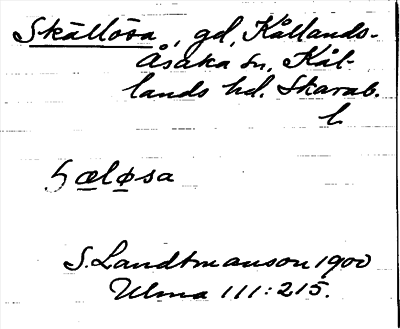 Skällösa, gd, Kållands-
Åsaka sn, Kål-
lands hd. Skarab.
l.
ɧæløsa
S. Landtmanson 1900
Ulma 111:215.